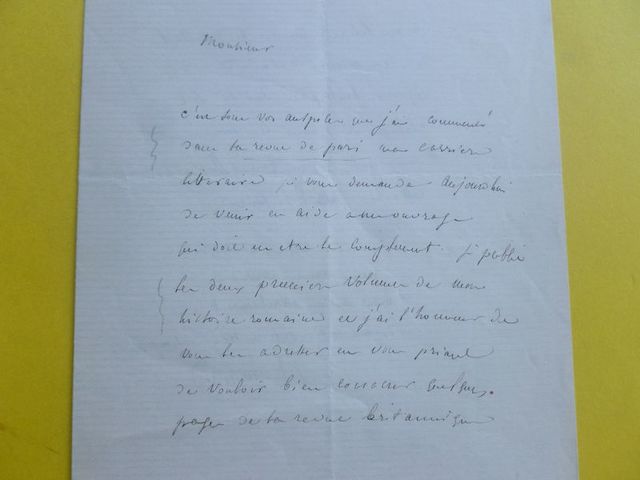 Monsieur
c'est sous vos auspices que j'ai commencé
dans la revue de paris ma carriere
litteraire je vous demande aujourdhui
de venir en aide a mon ouvrage
qui doit en etre le complement. je publie
les deux premiers volumes de mon
histoire romaine et j'ai l'honneur de
vous les adresser en vous priant
de vouloir bien consacrer quelques
pages de la revue britannique